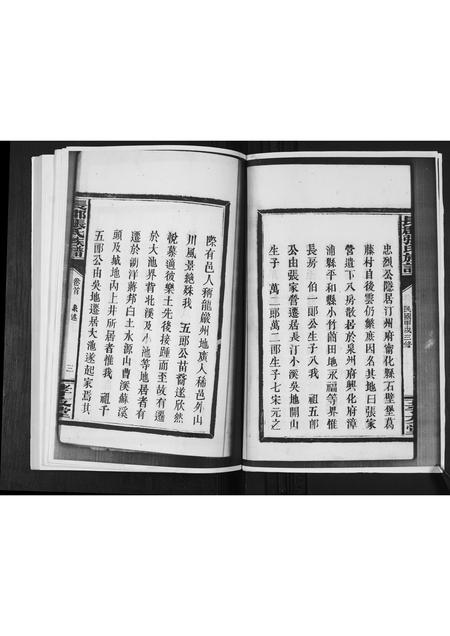 忠烈公隱居汀州府甯化縣石壁堡葛
藤村自後雲仍繁庶因名其地曰張家
營遺下八房散居於泉州府興化府漳
浦縣平和縣小竹茜田地永福等界惟
長房 伯一郎公生子八我 祖五郎
公由張家營遷居長汀小溪吳地開山
生子 萬二郎萬二郎生子七宋元之
際有邑人稱龍巖州地廣人稀邑外山
川風景絕殊我 五郎公苗裔遂欣然
悅慕適彼樂土先後接踵而至故有遷
於大池界背北溪及小池等地居者有
遷於湖洋蔣邦白土水源山曹溪蘇溪
頭及城地內上井所居者惟我 祖千
五郎公由吳地遷居大池遂起家焉其
卷首 泉述
三